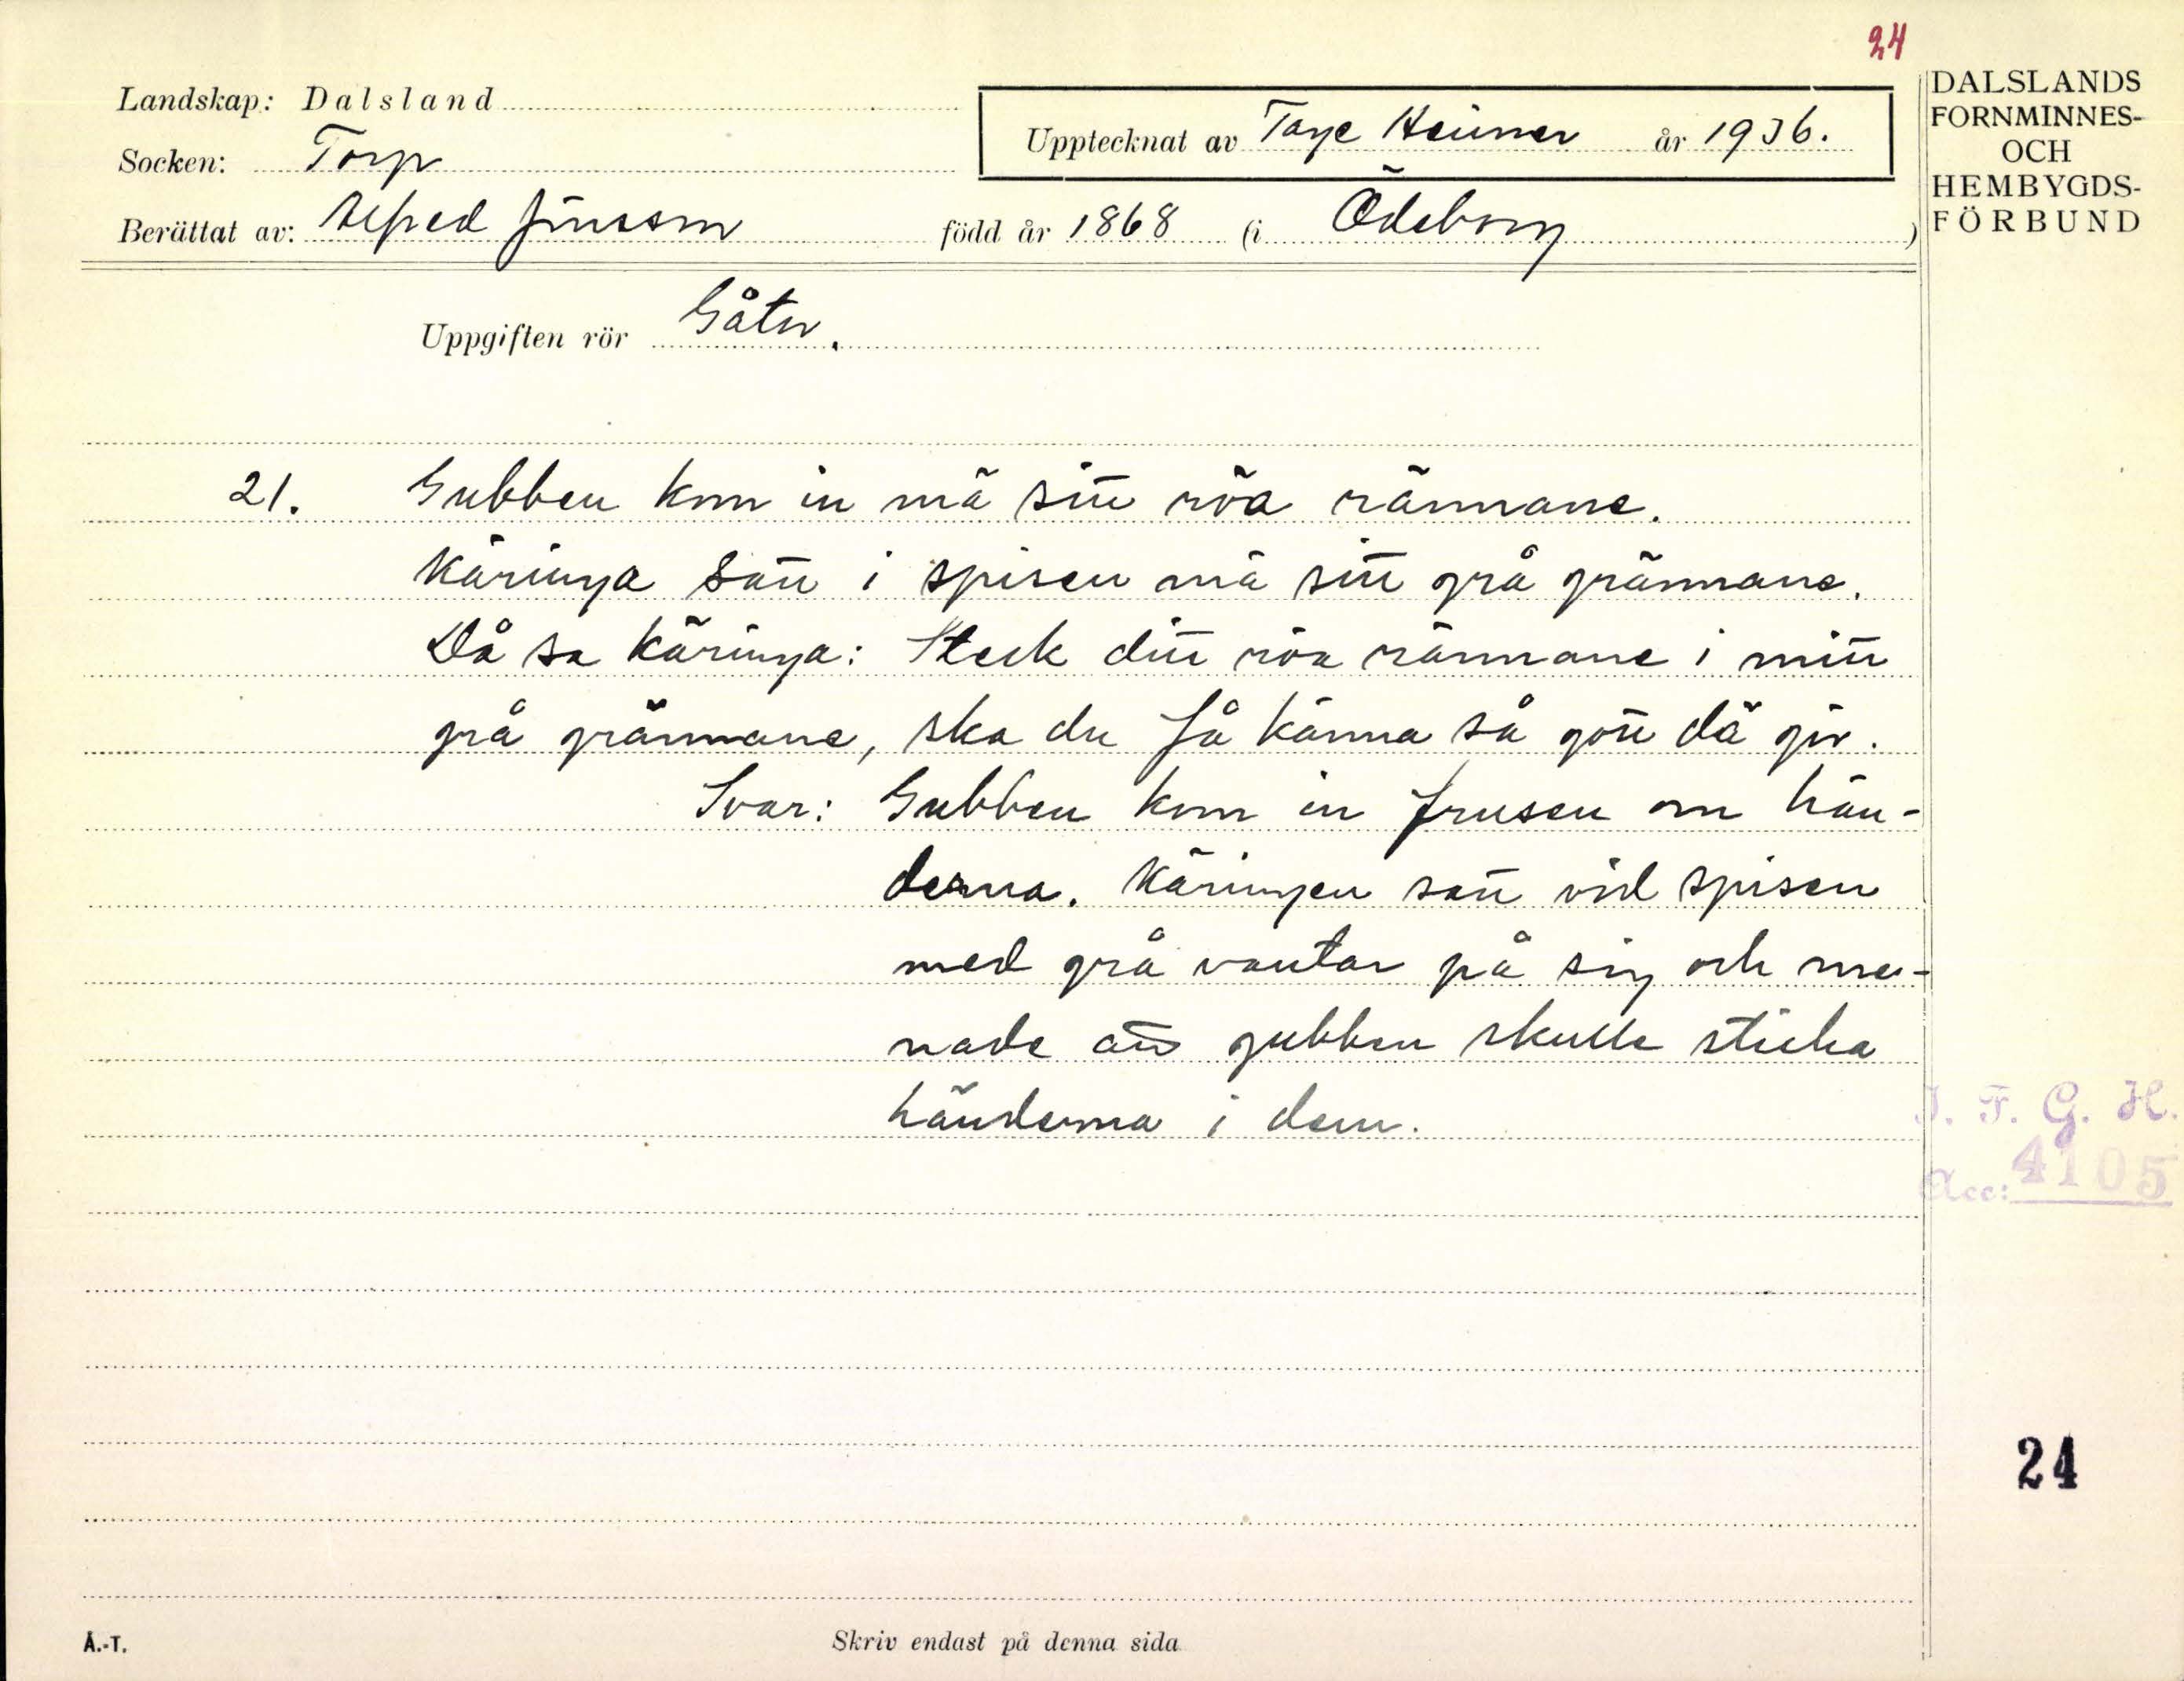 24
Landskap: Dalsland
Upptecknat av Tage Heimer år 1936.
Socken: Torp
Berättat av: Alfred Jönsson född år 1868 (i Ödeborg)
DALSLANDS
FORNMINNES-
OCH
HEMBYGDS-
FÖRBUND
Uppgiften rör Gåtor.
21. Gubben kom in mä sitt röa rännane.
Käringa satt i spisen mä sitt grå grännane.
Då sa käringa: Steck ditt röa rännane i mitt
grå grännane, ska du få känna så gött dä gör.
Svar: Gubben kom in frusen om hän-
derna. Käringen satt vid spisen
med grå vantar på sig och me-
nade att gubben skulle sticka
händerna i dem.
I. F. G. H.
Acc: 4105
24
Å.-T.
Skriv endast på denna sida